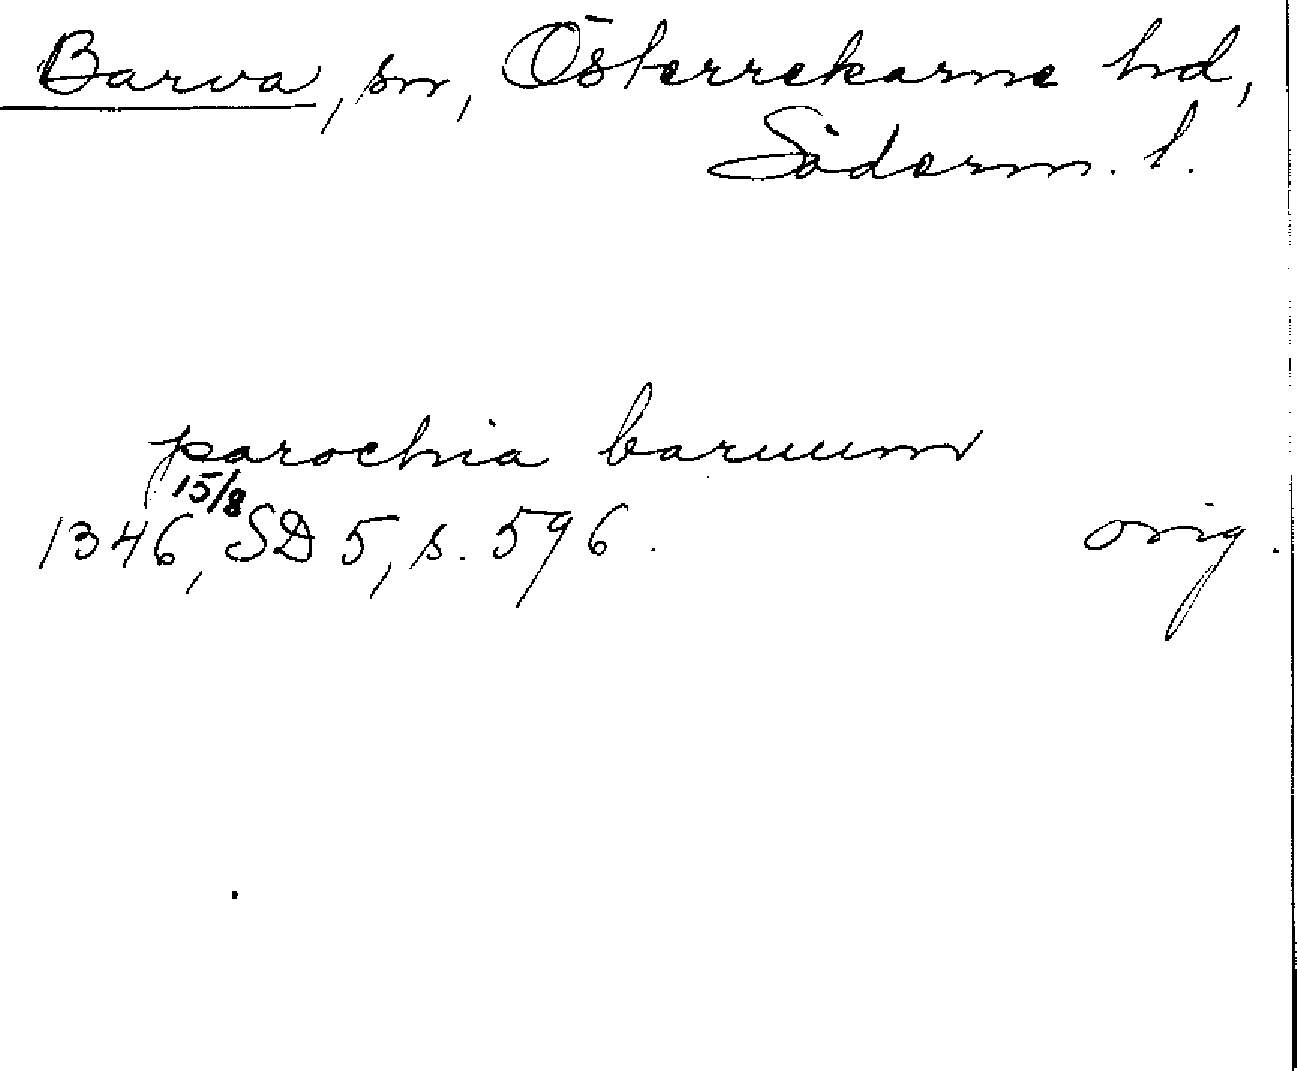 Barva, sn, Österrekarne hd,
Söderm. l.
parochia baruum
15/8
1346, SD 5, s. 596.
orig.